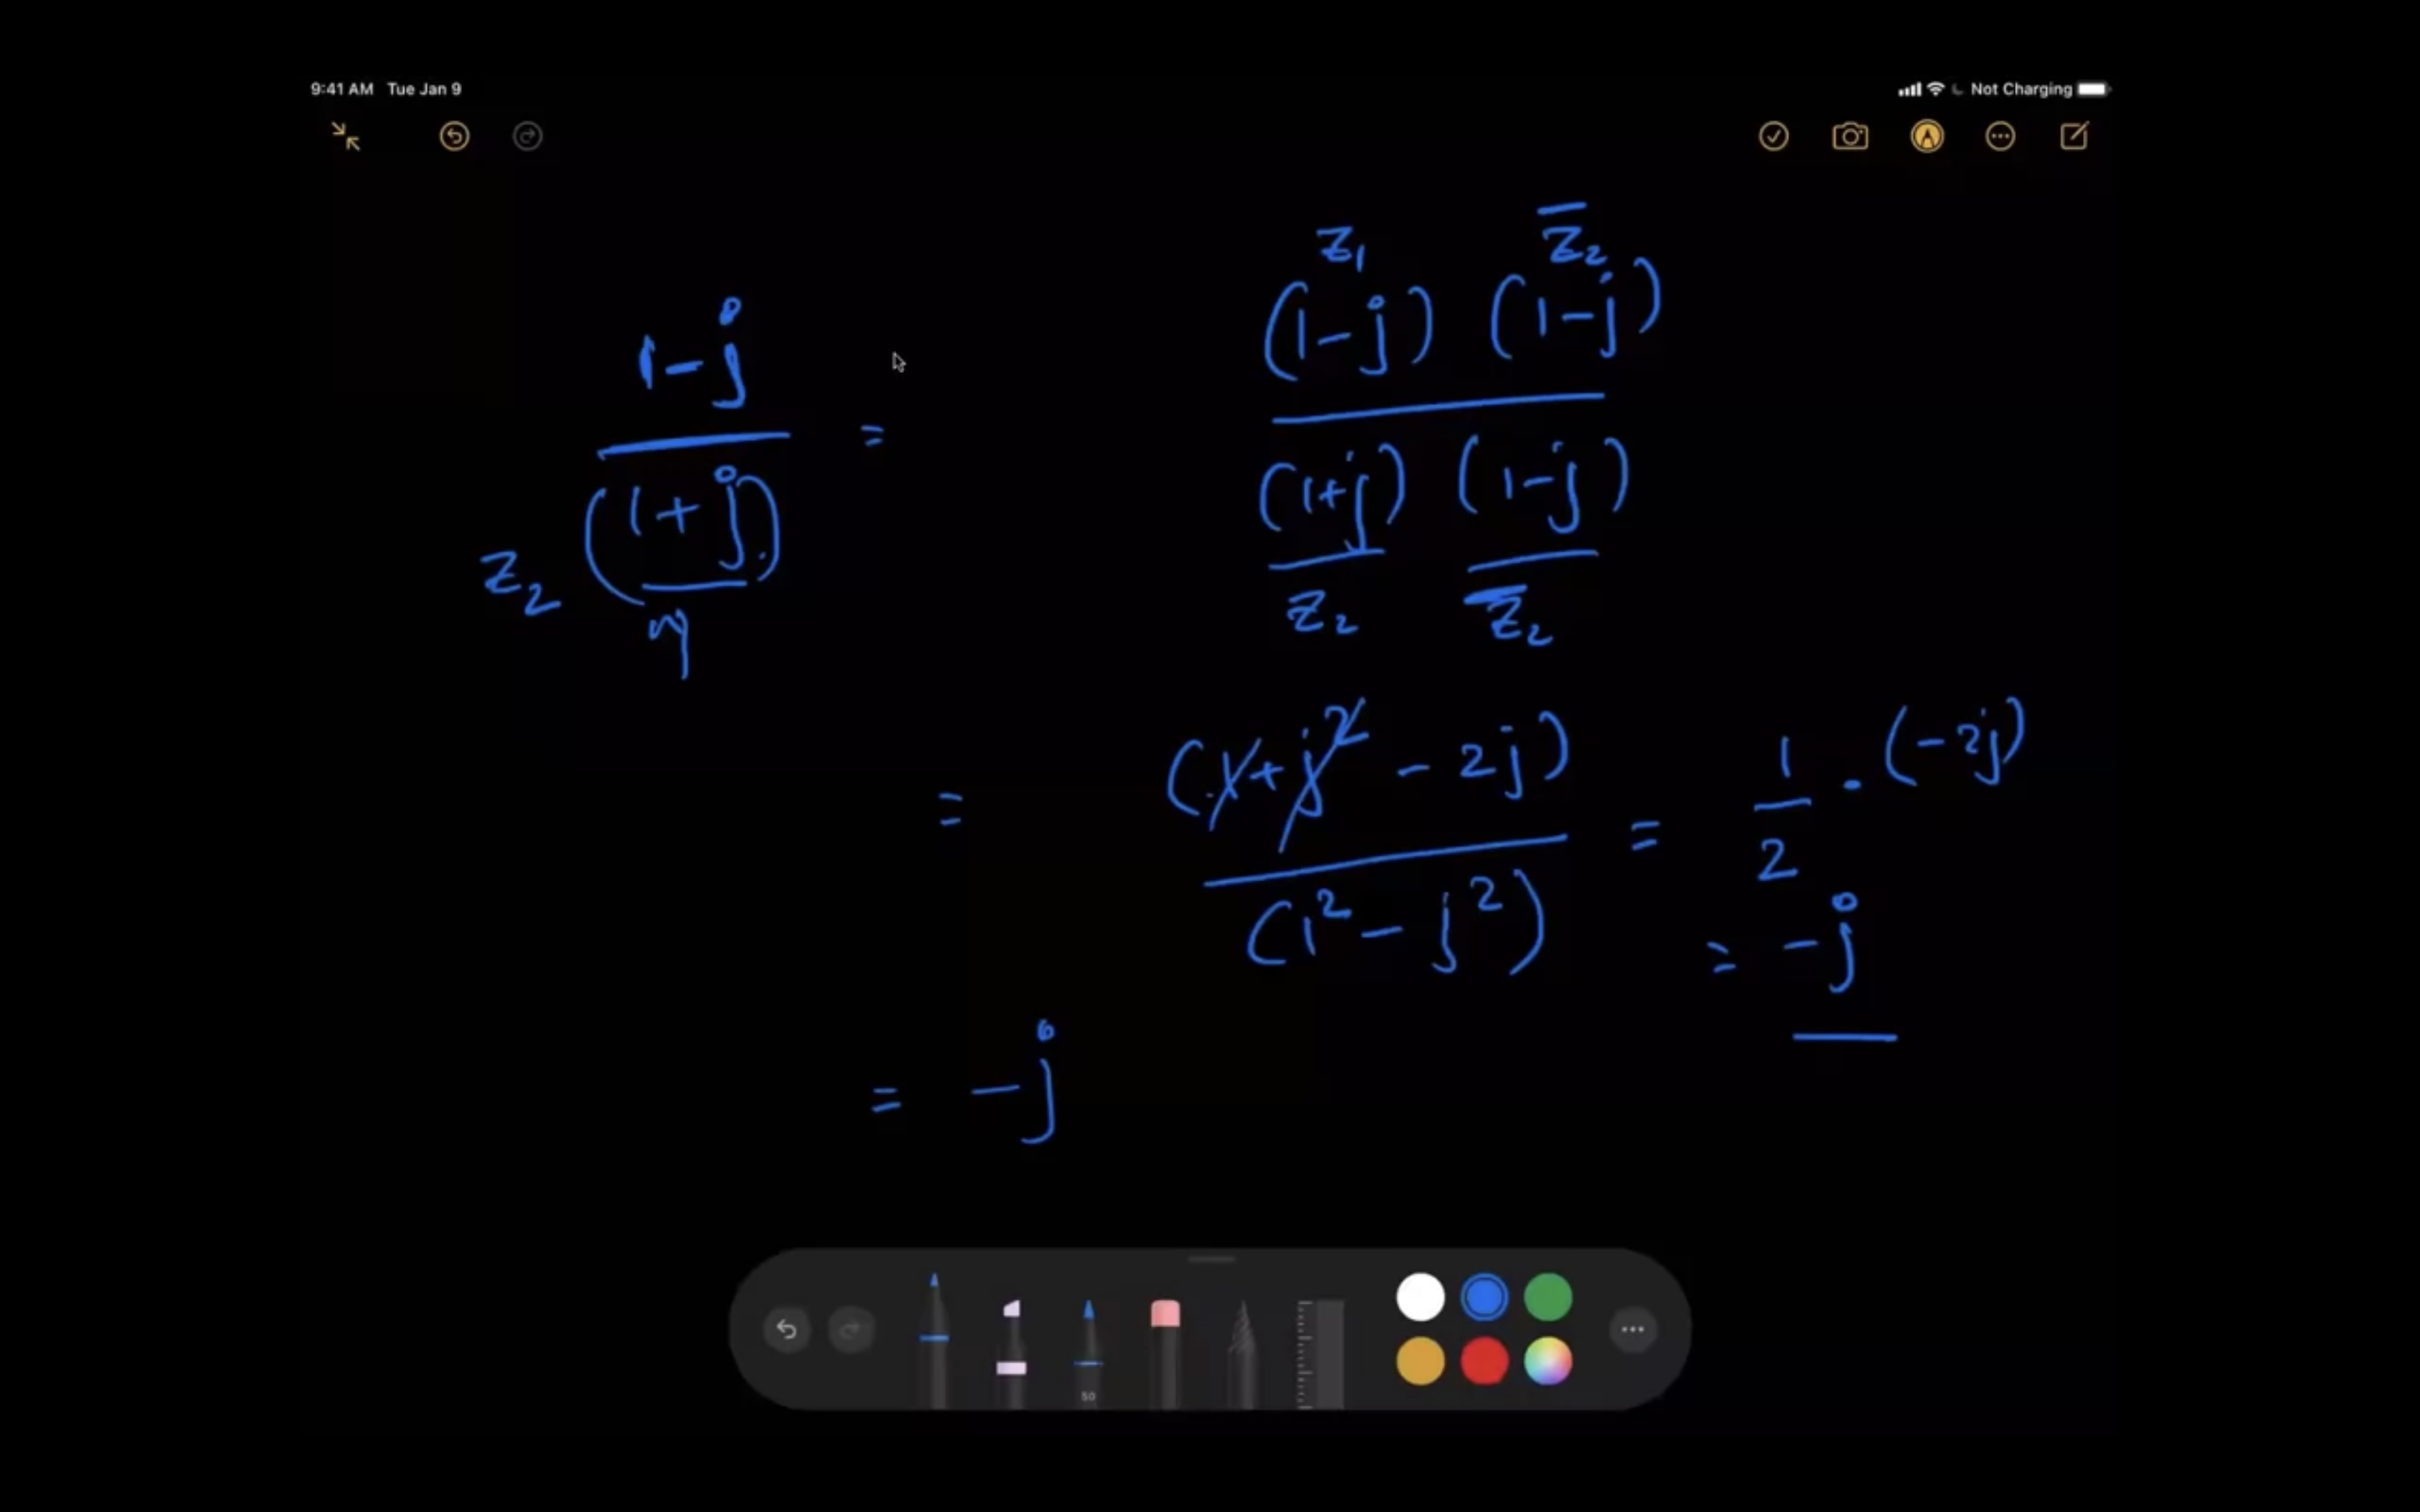 9:41 AM Tue Jan 9
Not Charging
1-j
=
z₂ (1+j)
z₁ z̄₂
(1-j) (1-j)
(1+j) (1-j)
z₂ z̄₂
= (1+j² - 2j) = 1/2 · (-2j)
(1² - j²)
= -j
= -j
50